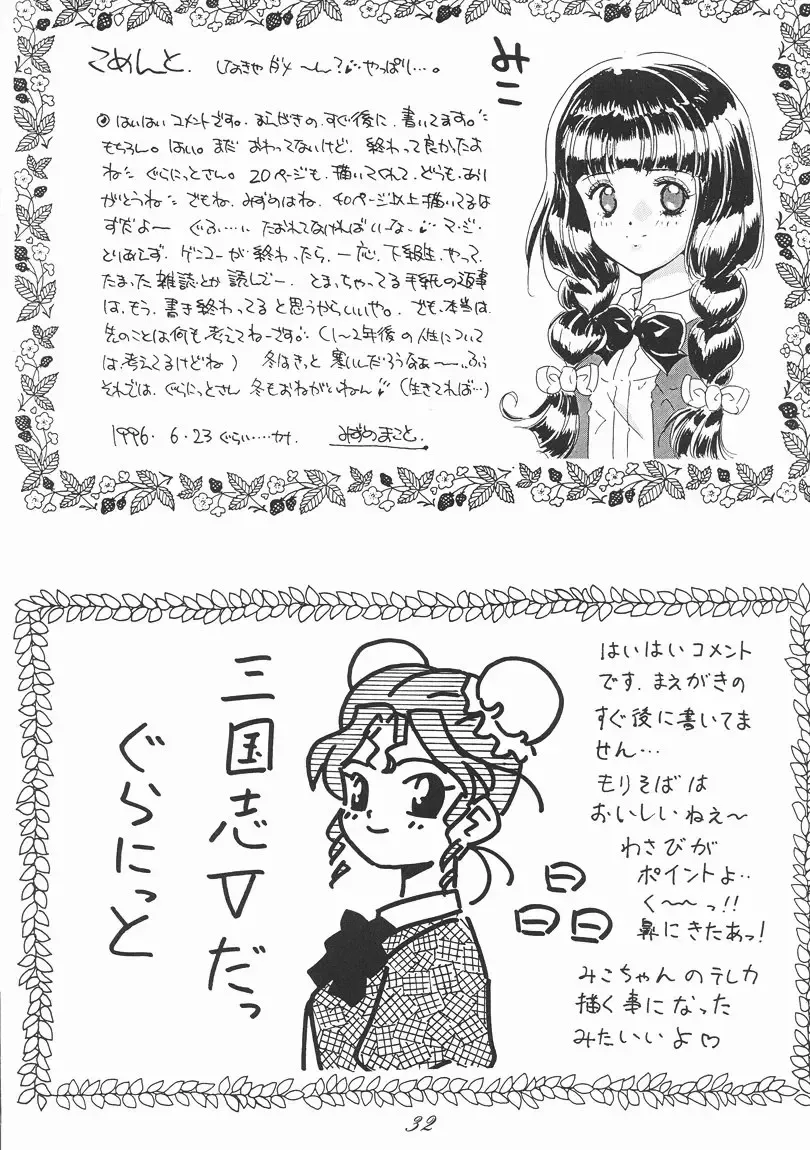 こめんと. しなきゃダメ〜ん?やっぱり…。
みこ
はいはいコメントです。まえがきの、すぐ後に、書いてます。
もちろん。はい。まだ おわってないけど、終わって良かったよ
ね ぐらにっとさん。20ページも、描いてくれて、どうも、あり
がとうね でもね、みずのはね、40ページ以上描いてるは
ずだよー ぐふ…い たおれてなければいーな、マ・ジ・
とりあえず、ゲンコーが終わったら、一応、下級生、やって、
たまった雑誌とか読んでー、とまっちゃってる手紙の返事
は、もう、書き終わってると思うからいいや。でも、本当は、
先のことは何も考えてねーです (1〜2年後の人生について
は考えてるけどね) 冬はきっと寒いんだろうなぁ〜…ふぅ
それでは、ぐらにっとさん 冬もおねがいねん (生きてれば…)
1996. 6.23 ぐらい…かな. みずのまこと.
三国志Vだっ
ぐらにっと
はいはいコメント
です. まえがきの
すぐ後に書いてま
せん…
もりそばは
おいしいねえ〜
わさびが
ポイントよ..
く〜〜っ!!
鼻にきたあっ!
みこちゃんのテレカ
描く事になった
みたいよ♡
32